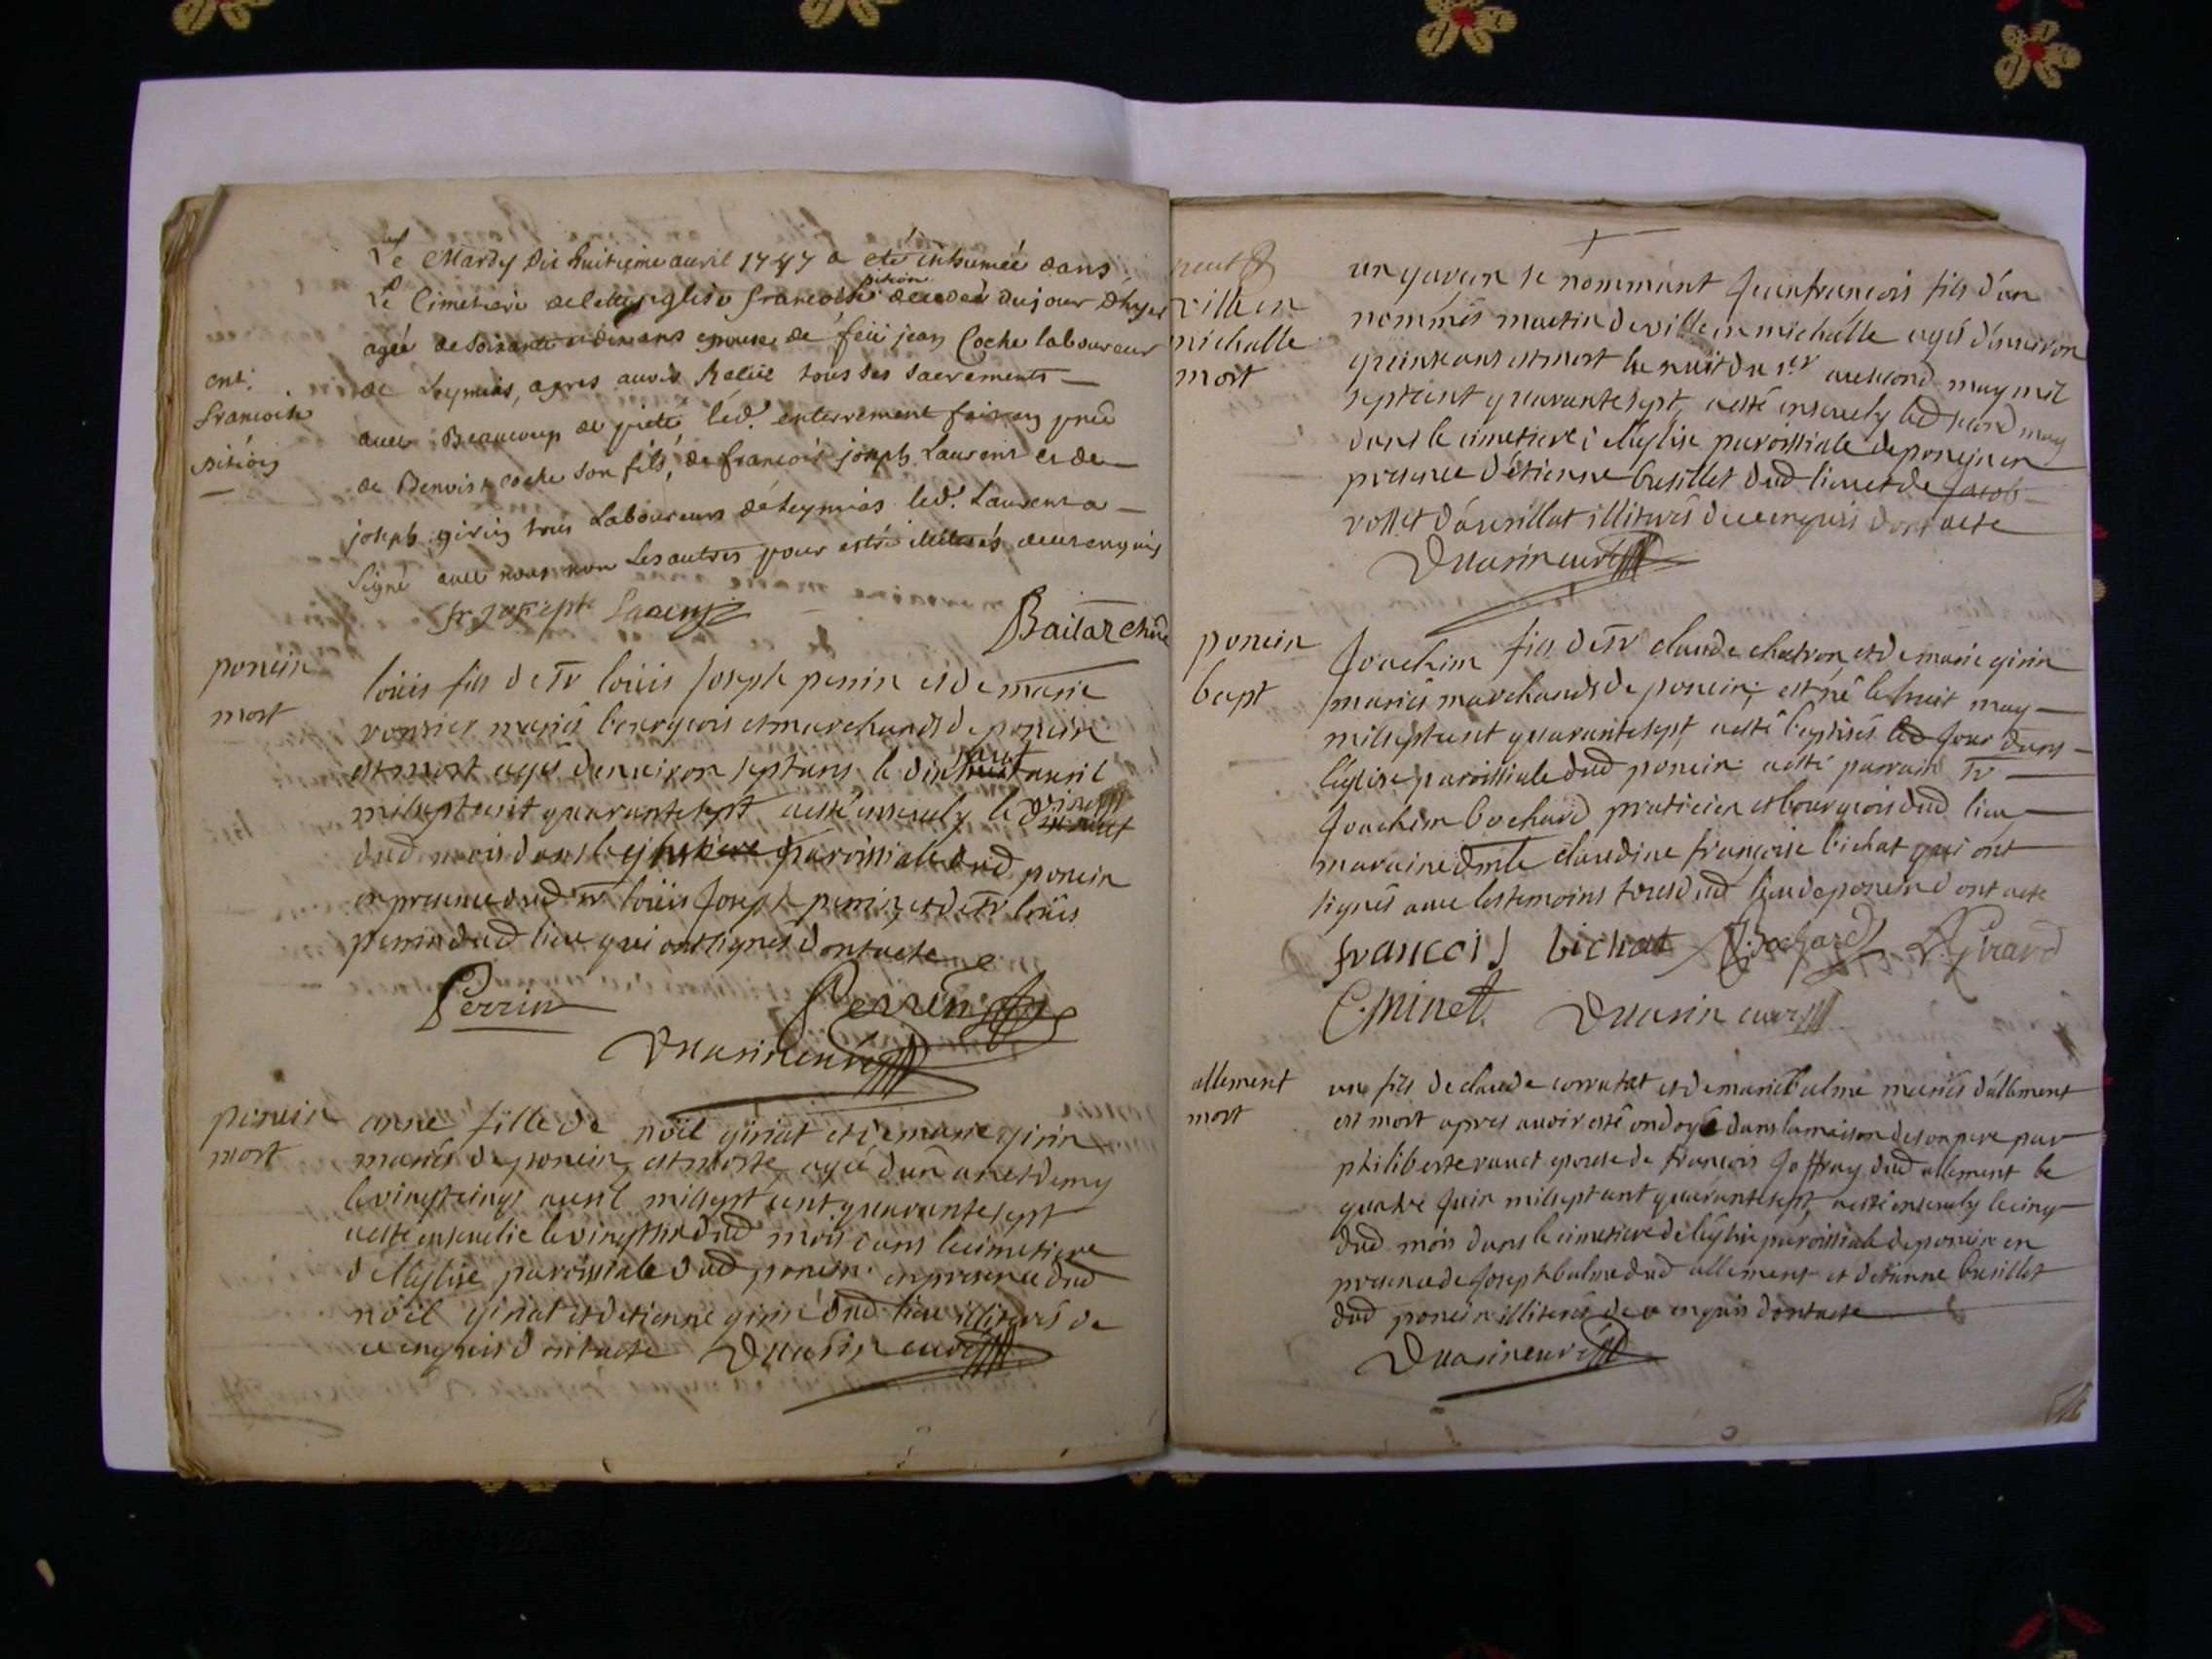 Le Mardy dix huitieme avril 1747 a eté inhumée dans
pition
Le Cimetiere de cette eglise francoise decedeé du jour d'hyer
ageé de soixante et dix ans epouse de feü jean Coche laboureur
de Leymias, apres avoir Reçüe tous ses sacrements
avec Beaucoup de pieté led. enterrement fait en pnce
de Benoist coche son fils, de francois joseph Laurent et de
joseph girin tous Laboureurs de Leymias led. Laurent a
signé avec nous non Les autres pour estre illiterés de ce enquis
fr joseph Laurent
ent:
francoise
pition
ponein
mort
loüis fils de sr loüis Joseph perrin et de marie
mariés bourgeois et marchands de ponein
neuf
est mort agé d'environ sept ans le dix huit avril
vingt
mil sept cent quarante sept a esté ensevely le
dud mois dans le cimetiere paroissiale dud ponein
en presence dud sr loüis Joseph perrin, et de sr loüis
perrin dud lieu qui ont signés dont acte
Perrin Perrin
Duasin curé
ponein
mort
anne fille de noël giriat et de marie girin
mariés de ponein, est morte, ageé d'un an et demy
le vingt cinq avril mil sept cent quarante sept
a esté ensevelie le vingt six dud mois dans le cimetiere
de l'eglise paroissiale dud ponein en presence dud
noël giriat et d'etienne girin dud lieu illiterés de
ce enquis dont acte Duasin curé
ville en
michalle
mort
un se nommant Jean francois fils d'un
nommés martin de ville en michalle agé d'environ
quinze ans est mort la nuit du 1er au second may mil
sept cent quarante sept, a esté ensevely led second may
dans le cimetiere de l'eglise paroissiale de ponein en
presence d'étienne busillet dud lieu et de Jacob
illiterés de ce enquis dont acte
Duasin curé
ponein
bapt
Joachim fils de sr claude chatron et de marie girin
mariés marchands de ponein, est né le huit may
mil sept cent quarante sept, a esté baptisés led jour dans
l'église paroissiale dud ponein a esté parrain sr
Joachim bochard praticien et bourgeois dud lieu
maraine dmlle claudine françoise bichat qui ont
signés avec les temoins tous dud lieu de ponein dont acte
francois bichat Bochard Girard
C. minet Duasin curé
allement
mort
un fils de claude corratat et de marie balme mariés d'allement
est mort apres avoir esté ondoyé dans la maison de son pere par
philiberte ravet epouse de francois Joffray dud allement le
quatre Juin mil sept cent quarante sept, a esté ensevely le cinq
dud mois dans le cimetiere de l'eglise paroissiale de ponein en
presence de Joseph balme dud allement et d'etienne busillet
dud ponein illiterés de ce enquis dont acte
Duasin curé